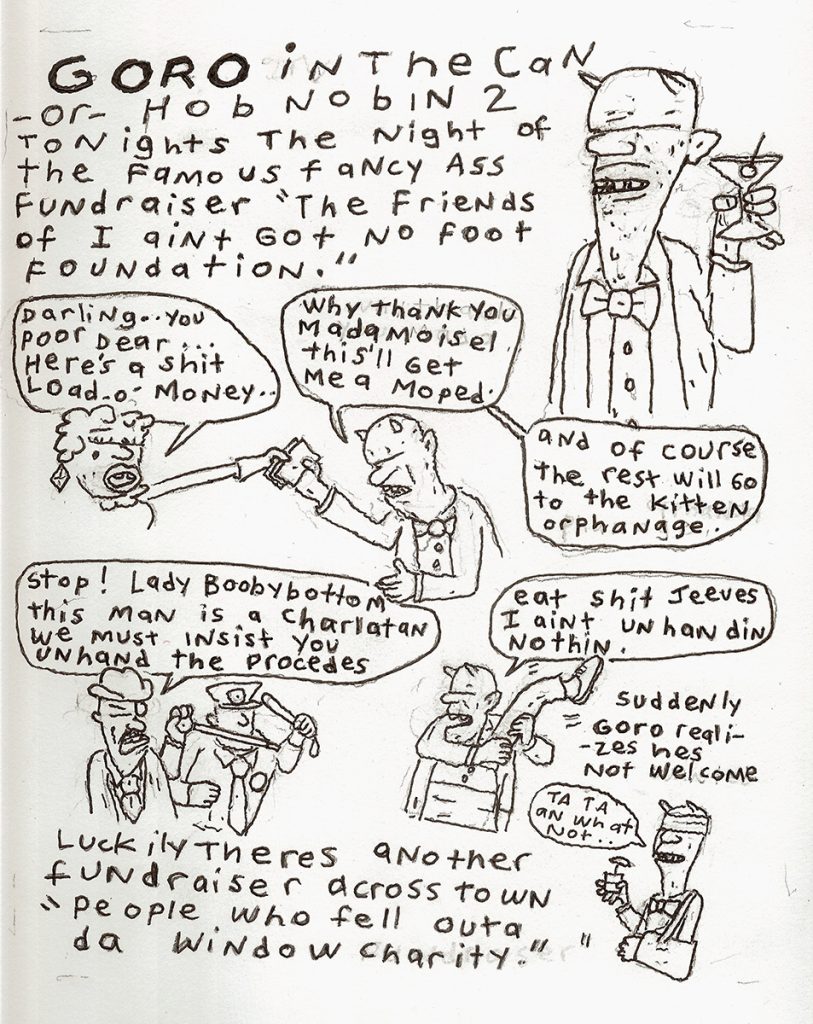 GORO iN The CaN
-or- Hob Nobin 2
ToNights The Night of
the Famous faNcy Ass
Fundraiser "The Friends
of I aint Got No foot
Foundation."
Darling..you
poor Dear...
Here's a shit
Load-o' Money..
Why thank you
Madamoisel.
this'll Get
Me a Moped.
and of course
the rest will Go
to the kitten
orphanage.
Stop! Lady Boobybottom
this man is a Charlatan
We must insist you
unhand the procedes
eat shit Jeeves
I aint unhandin
Nothin.
Suddenly
Goro reali-
-zes hes
Not welcome
TA TA
an what
Not..
Luckily Theres another
fundraiser across town
"people who fell outa
da window charity." "